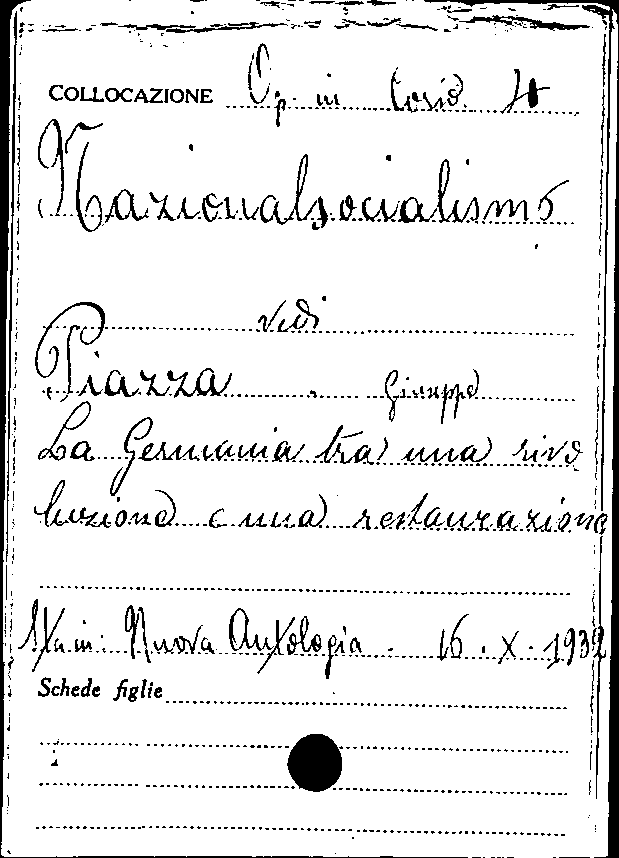 COLLOCAZIONE Op. in Cosid. 4
Nazionalsocialismo
vedi
Piazza Giuseppe
La Germania tra una rivo
luzione e una restaurazione
Sta in: Nuova Antologia - 16 . X . 1932
Schede figlie